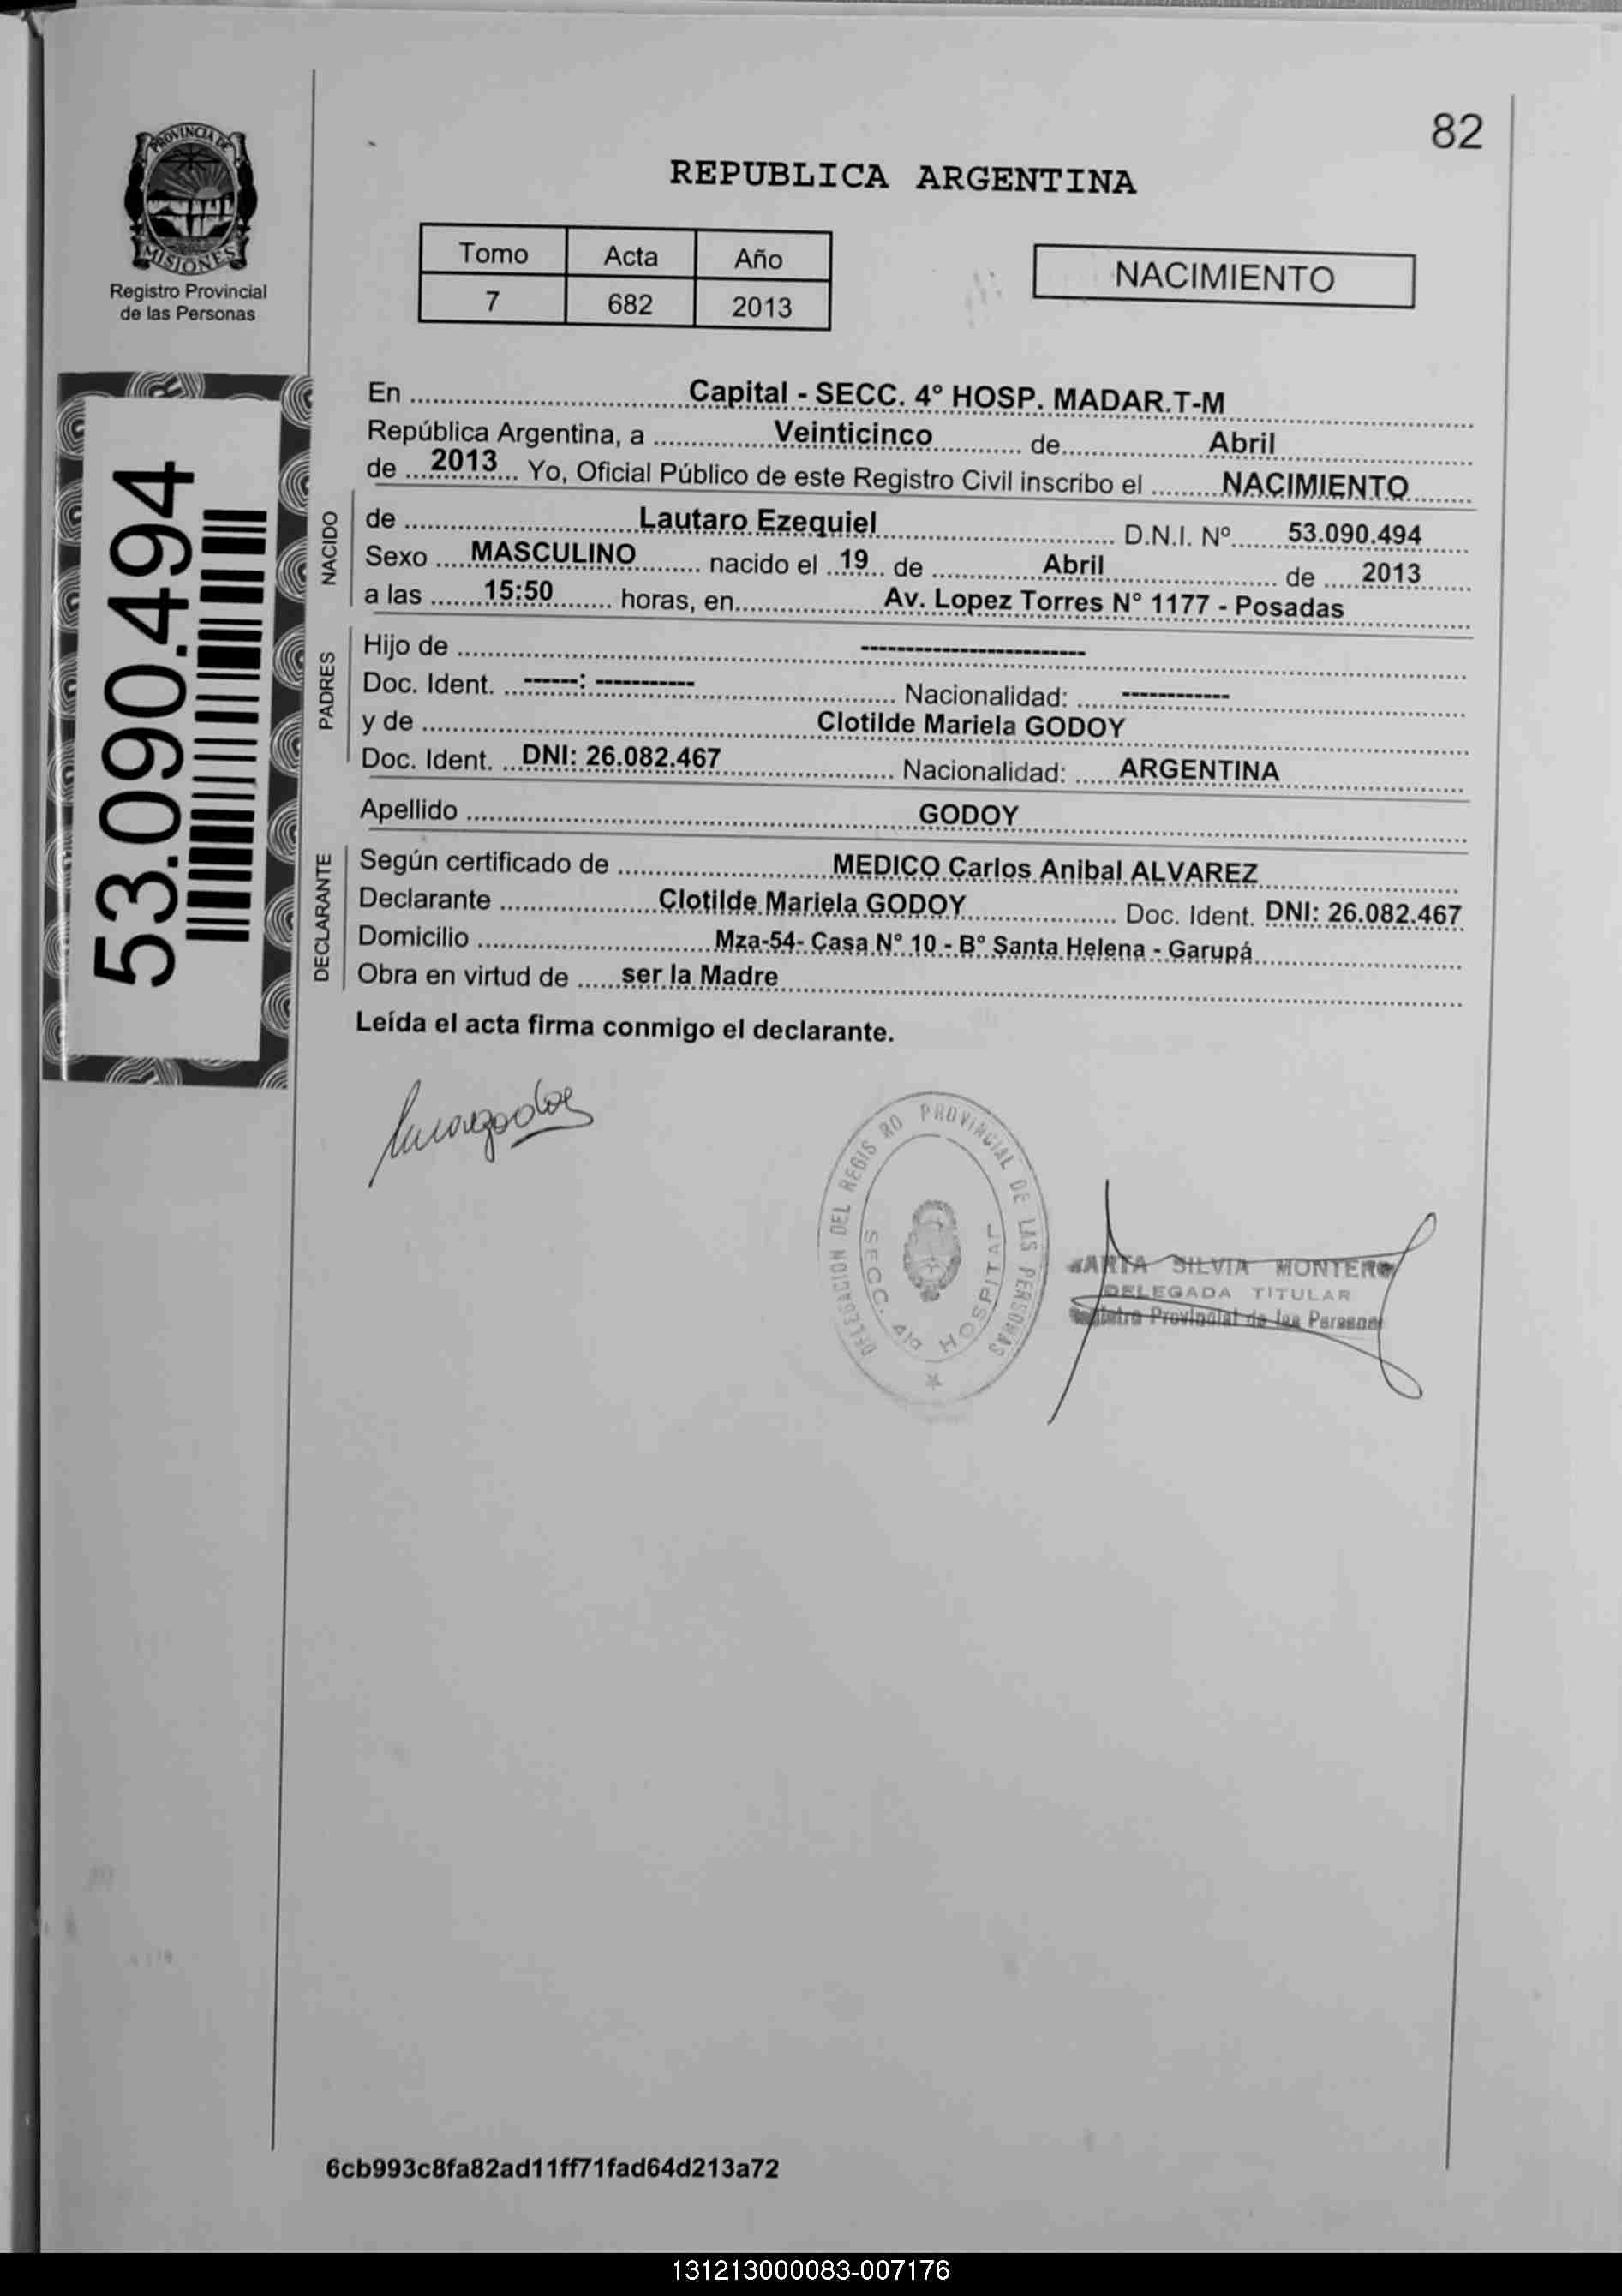 82
PROVINCIA DE
MISIONES
Registro Provincial
de las Personas
REPUBLICA ARGENTINA
Tomo Acta Año
7 682 2013
NACIMIENTO
53.090.494
En Capital - SECC. 4º HOSP. MADAR.T-M
República Argentina, a Veinticinco de Abril
de 2013 Yo, Oficial Público de este Registro Civil inscribo el NACIMIENTO
NACIDO
de Lautaro Ezequiel D.N.I. Nº 53.090.494
Sexo MASCULINO nacido el 19 de Abril de 2013
a las 15:50 horas, en Av. Lopez Torres N° 1177 - Posadas
PADRES
Hijo de ------------------------
Doc. Ident. ------: ----------- Nacionalidad: ------------
y de Clotilde Mariela GODOY
Doc. Ident. DNI: 26.082.467 Nacionalidad: ARGENTINA
Apellido GODOY
DECLARANTE
Según certificado de MEDICO Carlos Anibal ALVAREZ
Declarante Clotilde Mariela GODOY Doc. Ident. DNI: 26.082.467
Domicilio Mza-54- Casa N° 10 - B° Santa Helena - Garupá
Obra en virtud de ser la Madre
Leída el acta firma conmigo el declarante.
DELEGACION DEL REGIS RO PROVINCIAL DE LAS PERSONAS
SECC. 4ta HOSPITAL
MARTA SILVIA MONTERO
DELEGADA TITULAR
Registro Provincial de las Personas
6cb993c8fa82ad11ff71fad64d213a72
131213000083-007176